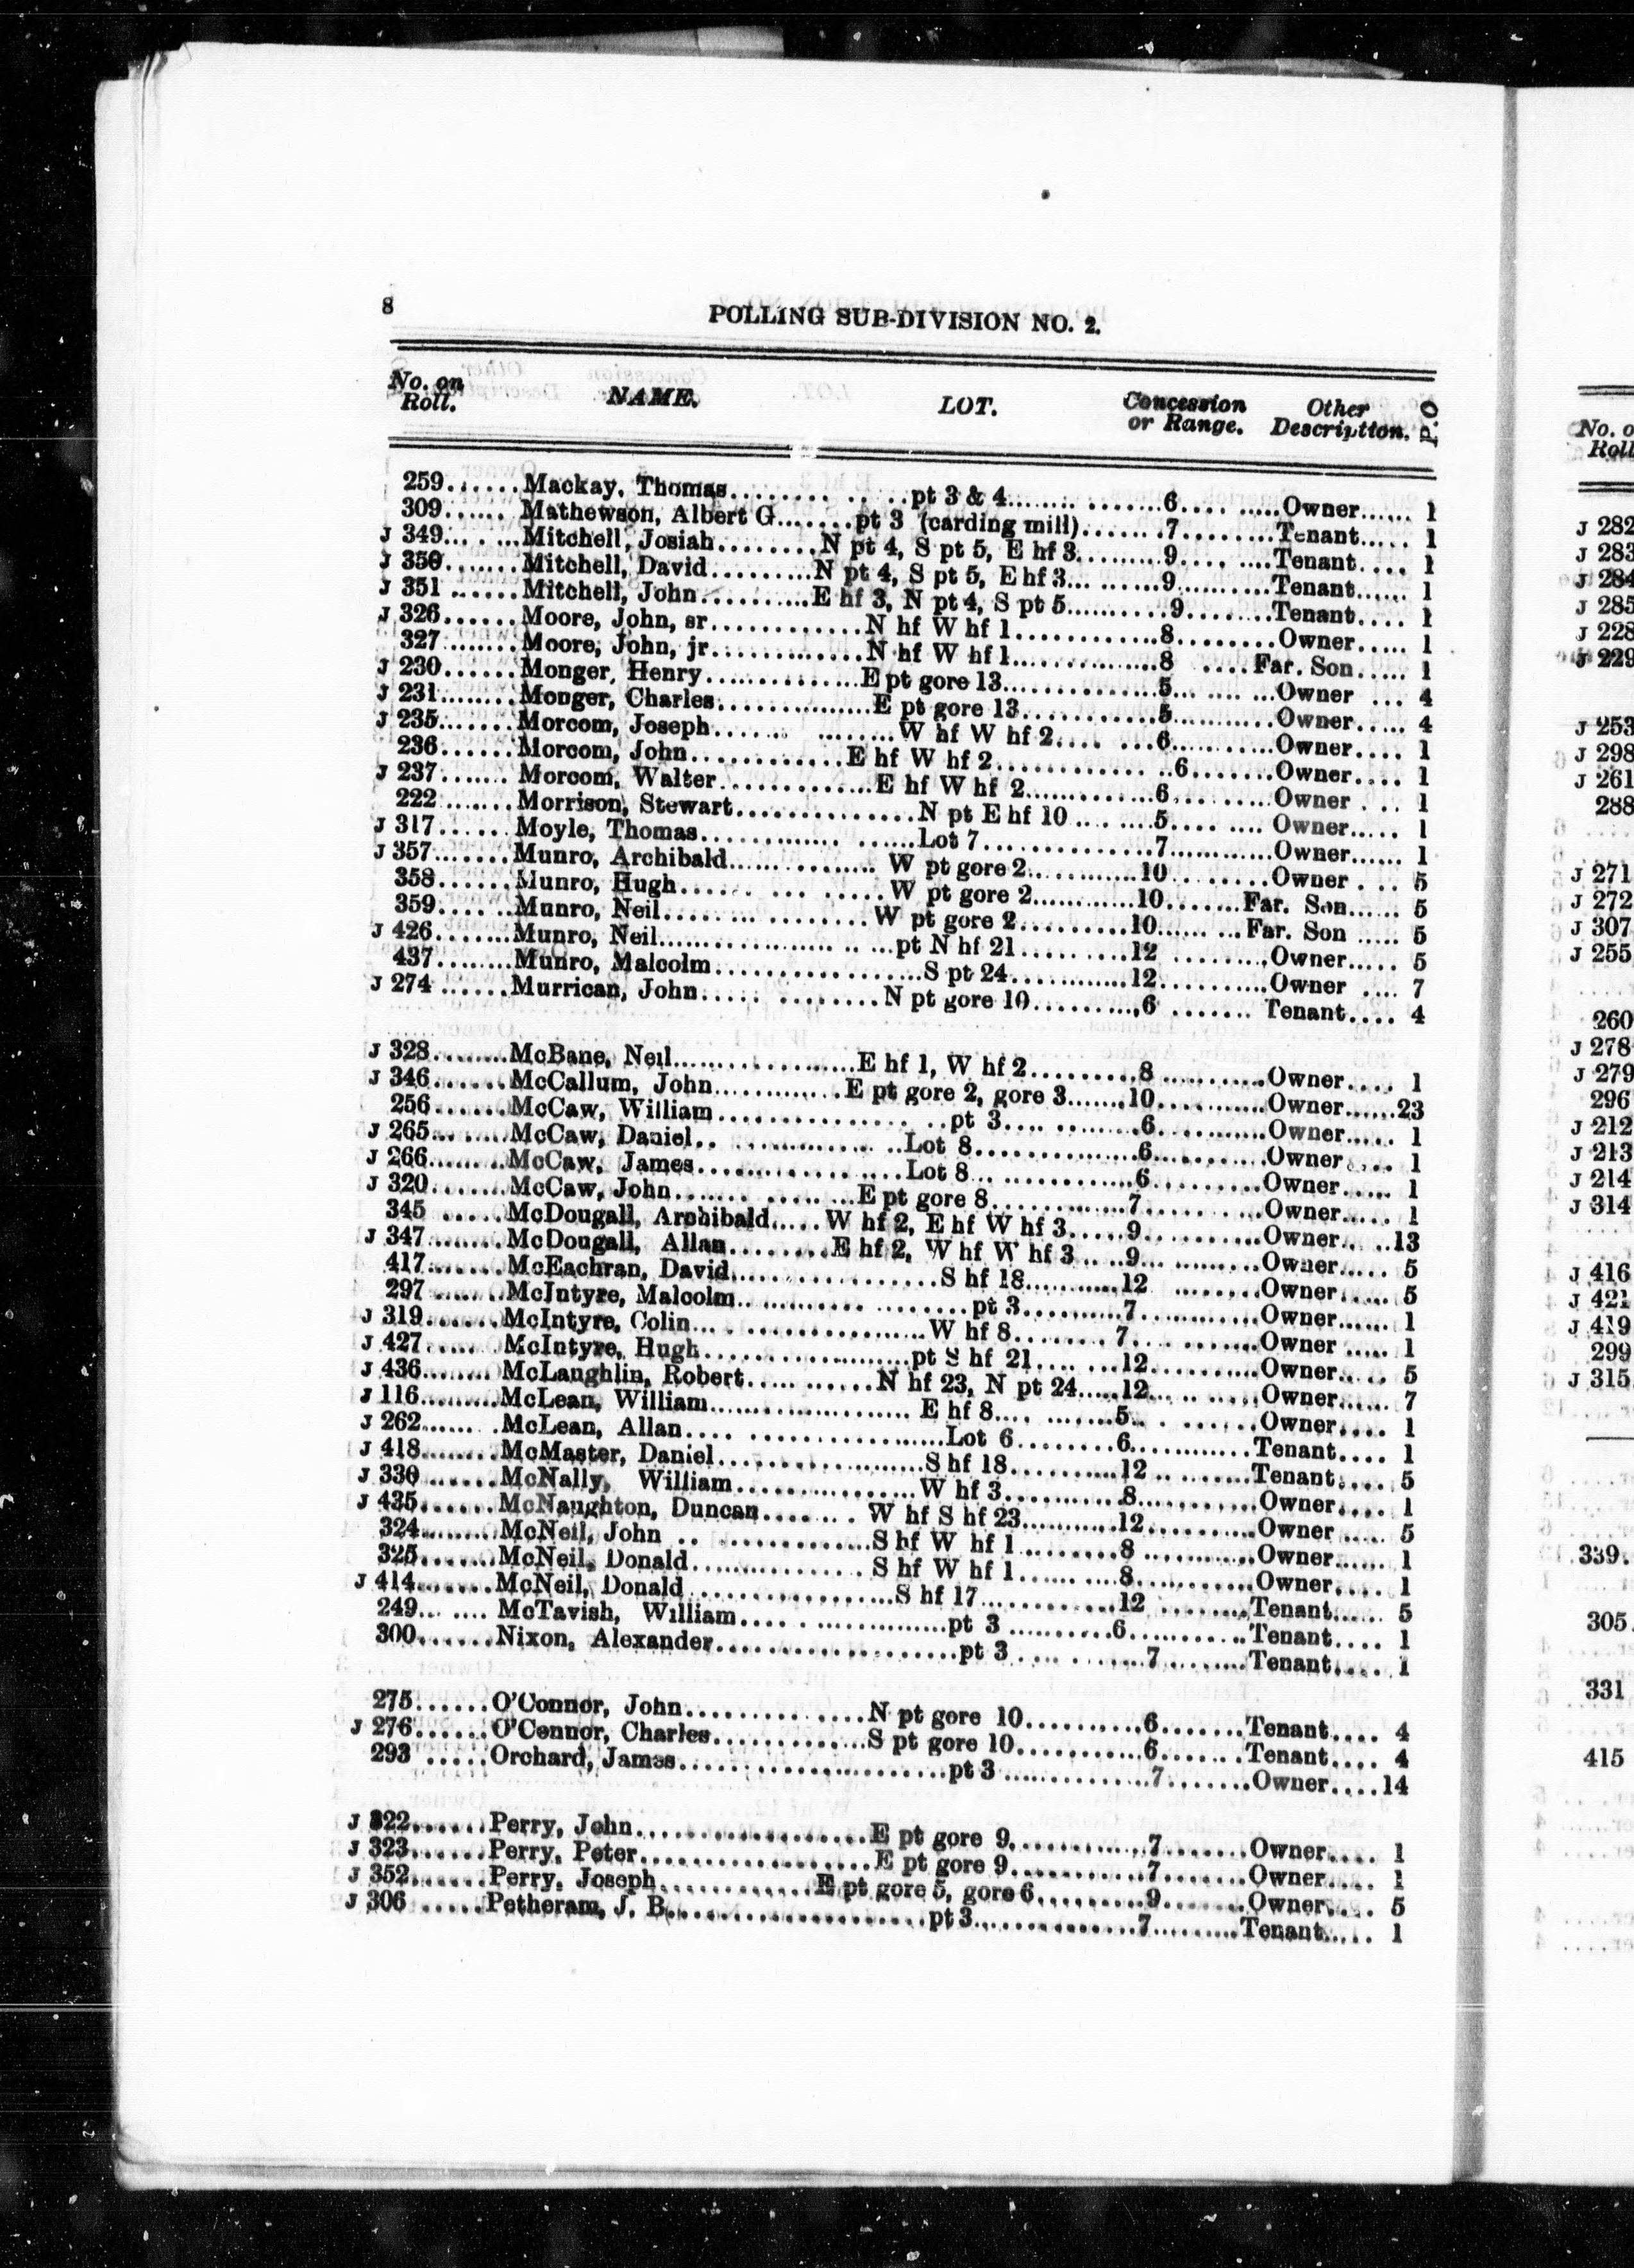 8
POLLING SUB-DIVISION NO. 2.
No. on Roll. NAME. LOT. Concession or Range. Other Description. P.O
259......Mackay, Thomas..........pt 3 & 4..........6..........Owner......1
309......Mathewson, Albert G.......pt 3 (carding mill).......7........Tenant.....1
J 349.......Mitchell, Josiah.........N pt 4, S pt 5, E hf 3.........9........Tenant....1
J 350.......Mitchell, David..........N pt 4, S pt 5, E hf 3.........9..........Tenant......1
J 351......Mitchell, John..........E hf 3, N pt 4, S pt 5...........9........Tenant....1
J 326......Moore, John, sr............N hf W hf 1............8........Owner.....1
327.......Moore, John, jr............N hf W hf 1............8.....Far. Son.....1
J 230......Monger, Henry.............E pt gore 13.............5..........Owner...4
J 231.......Monger, Charles.............E pt gore 13...........5..........Owner.....4
J 235.......Morcom, Joseph..............W hf W hf 2.......6..........Owner....1
236......Morcom, John............E hf W hf 2.............6.......Owner....1
J 237.......Morcom, Walter.............E hf W hf 2............6.........Owner....1
222.......Morrison, Stewart..............N pt E hf 10........5........Owner.....1
J 317......Moyle, Thomas..................Lot 7..............7..........Owner......1
J 357.......Munro, Archibald.............W pt gore 2...........10.........Owner....5
358......Munro, Hugh..............W pt gore 2............10.......Far. Son......5
359.......Munro, Neil..................W pt gore 2..........10.........Far. Son.....5
J 426.......Munro, Neil......................pt N hf 21..........12.........Owner.....5
437........Munro, Malcolm..................S pt 24...........12..........Owner....7
J 274......Murrican, John.............N pt gore 10..........6.......Tenant....4
J 328........McBane, Neil.................E hf 1, W hf 2.........8..........Owner....1
J 346.......McCallum, John............E pt gore 2, gore 3.......10...........Owner......23
256.......McCaw, William...................pt 3...........6..........Owner.....1
J 265........McCaw, Daniel.................Lot 8..............6..........Owner.....1
J 266........McCaw, James..................Lot 8..............6.........Owner.....1
J 320.......McCaw, John...............E pt gore 8............7..........Owner.....1
345......McDougall, Archibald.....W hf 2, E hf W hf 3.....9..........Owner.....13
J 347........McDougall, Allan.........E hf 2, W hf W hf 3.....9..........Owner.....5
417.......McEachran, David..................S hf 18..........12........Owner......5
297........McIntyre, Malcolm....................pt 3..........7..........Owner......1
J 319.......McIntyre, Colin....................W hf 8........7..........Owner.....1
J 427......McIntyre, Hugh.................pt S hf 21.......12.........Owner.....5
J 436........McLaughlin, Robert...........N hf 23, N pt 24.....12..........Owner.....7
J 116.........McLean, William...................E hf 8..........5..........Owner....1
J 262........McLean, Allan....................Lot 6........6...........Tenant....1
J 418.......McMaster, Daniel..................S hf 18..........12.........Tenant.....5
J 330.......McNally, William................W hf 3..........8..........Owner....1
J 435.......McNaughton, Duncan........W hf S hf 23..........12..........Owner.....5
324.........McNeil, John...............S hf W hf 1.........8..........Owner......1
325.......McNeil, Donald...............S hf W hf 1.........8..........Owner....1
J 414.......McNeil, Donald..................S hf 17...........12........Tenant.....5
249.......McTavish, William..................pt 3..........6..........Tenant....1
300......Nixon, Alexander.....................pt 3..........7........Tenant....1
275......O'Connor, John................N pt gore 10..........6.......Tenant....4
J 276......O'Connor, Charles..............S pt gore 10...........6.......Tenant....4
293.....Orchard, James......................pt 3.............7.......Owner....14
J 322......Perry, John..................E pt gore 9...........7.......Owner....1
J 323......Perry, Peter..................E pt gore 9..........7.......Owner....1
J 352......Perry, Joseph............E pt gore 5, gore 6.........9.......Owner....5
J 306.....Petheram, J. B.....................pt 3.............7.........Tenant.....1
No. o
Roll
J 282
J 283
J 284
J 285
J 228
J 229
J 253
J 298
J 261
288
J 271
J 272
J 307
J 255
260
J 278
J 279
296
J 212
J 213
J 214
J 314
J 416
J 421
J 419
299
J 315
339.
305.
331
415